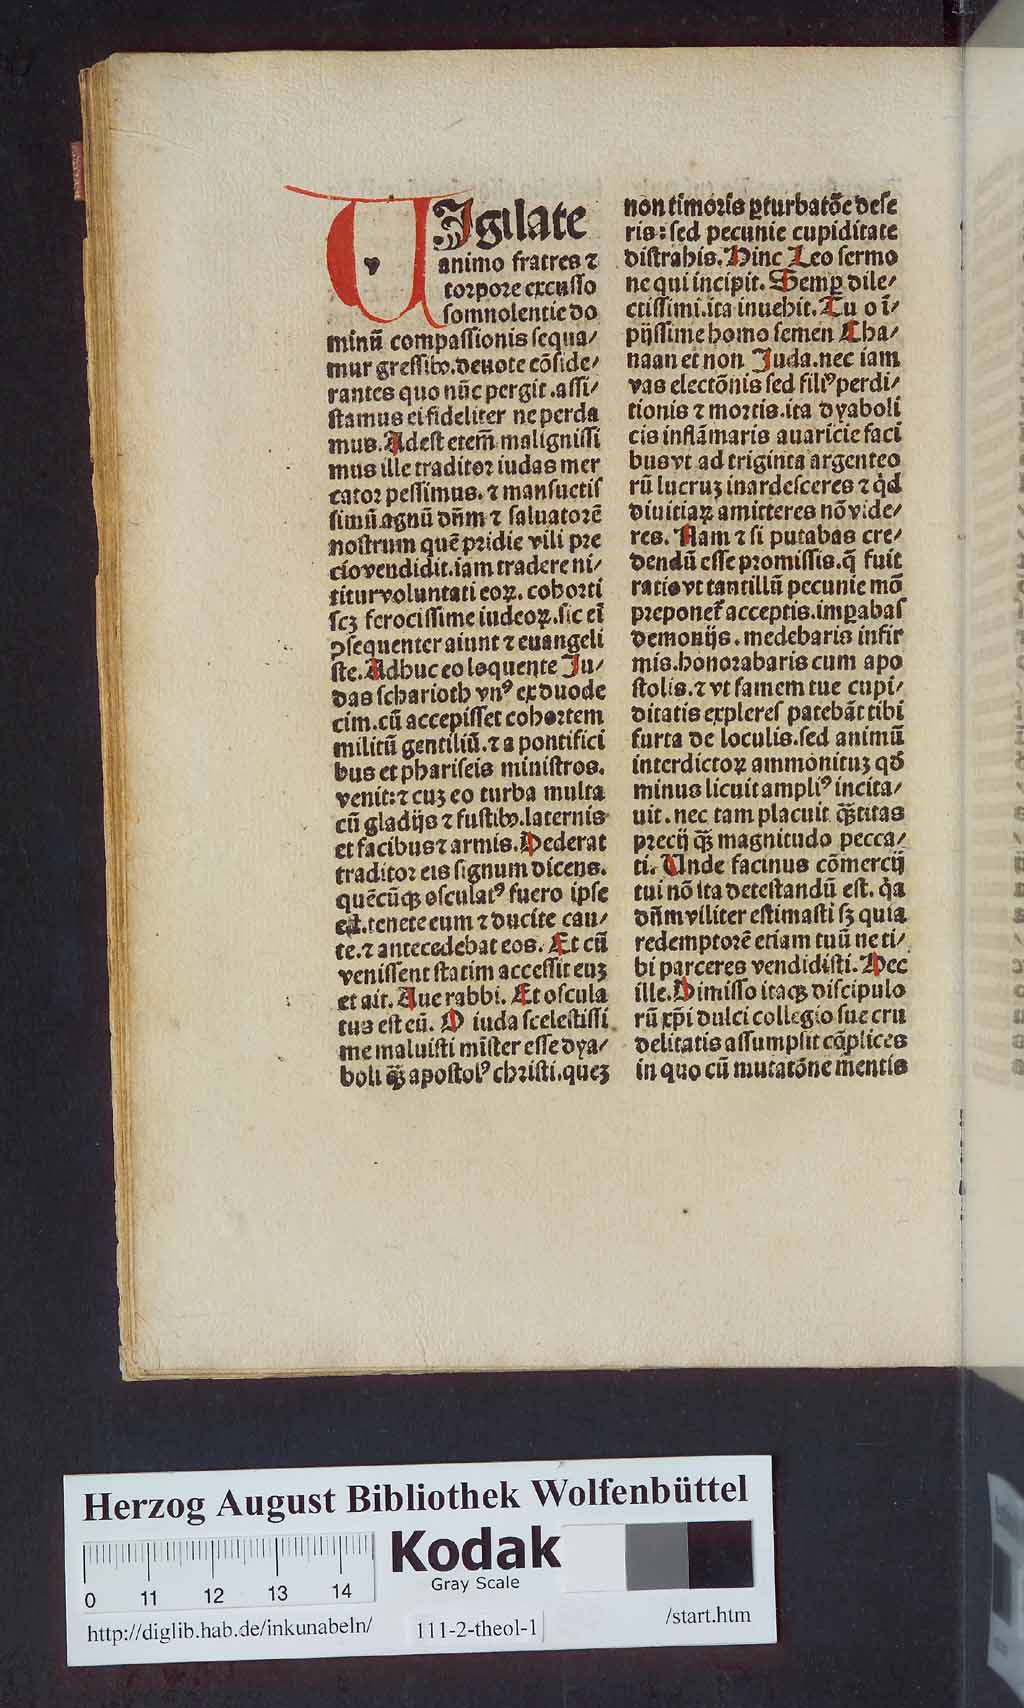 VIgilate
animo fratres ⁊
torpore excusso
somnolentie do
minū compassionis sequa⸗
mur gressibꝰ.deuote cōside⸗
rantes quo nūc pergit.assi⸗
stamus ei fideliter ne perda
mus.Adest etem̄ malignissi
mus ille traditor iudas mer
cator pessimus.⁊ mansuetis
simū agnū dn̄m ⁊ saluatorē
nostrum quē pridie vili pre
cio vendidit.iam tradere ni⸗
titur voluntati eoꝝ.cohorti
scꝫ ferocissime iudeoꝝ.sic em̄
ꝯsequenter aiunt ⁊ euangeli
ste.Adhuc eo loquente Ju⸗
das scharioth vnꝰ ex duode
cim.cū accepisset cohortem
militū gentiliū.⁊ a pontifici
bus et phariseis ministros.
venit:⁊ cuꝫ eo turba multa
cū gladijs ⁊ fustibꝰ.laternis
et facibus ⁊ armis.Dederat
traditor eis signum dicens.
quēcūqꝫ osculatꝰ fuero ipse
est.tenete eum ⁊ ducite cau⸗
te.⁊ antecedebat eos. Et cū
venissent statim accessit euꝫ
et ait. Aue rabbi. Et oscula
tus est eū. O iuda scelestissi
me maluisti mīster esse dya⸗
boli qꝫ̄ apostolꝰ christi.queꝫ
non timoris ꝑturbatōe dese
ris:sed pecunie cupiditate
distrahis.Hinc Leo sermo
ne qui incipit. Semꝑ dile⸗
ctissimi.ita inuehit.Tu o ī⸗
pijssime homo semen Cha⸗
naan et non Juda.nec iam
vas electōnis sed filiꝰ perdi⸗
tionis ⁊ mortis.ita dyaboli
cis inflāmaris auaricie faci
bus vt ad triginta argenteo
rū lucruꝫ inardesceres ⁊ qd̄
diuitiaꝝ amitteres nō vide⸗
res. Nam ⁊ si putabas cre⸗
dendū esse promissis.q̄ fuit
ratio vt tantillū pecunie mō
preponet̄ acceptis.imꝑabas
demonijs.medebaris infir
mis.honorabaris cum apo
stolis.⁊ vt famem tue cupi⸗
ditatis expleres patebāt tibi
furta de loculis.sed animū
interdictoꝝ ammonituꝫ qd̄
minus licuit ampliꝰ incita⸗
uit.nec tam placuit qꝫ̄titas
precij qꝫ̄ magnitudo pecca⸗
ti. Unde facinus cōmercij
tui nō ita detestandū est. qa̓
dn̄m viliter estimasti sꝫ quia
redemptorē etiam tuū ne ti⸗
bi parceres vendidisti. Hec
ille.Dimisso itaqꝫ discipulo
rū xp̄i dulci collegio sue cru
delitatis assumpsit cāplices
in quo cū mutatōne mentis
Herzog August Bibliothek Wolfenbüttel
Kodak
Gray Scale
0 11 12 13 14
http://diglib.hab.de/inkunabeln/ 111-2-theol-1 /start.htm